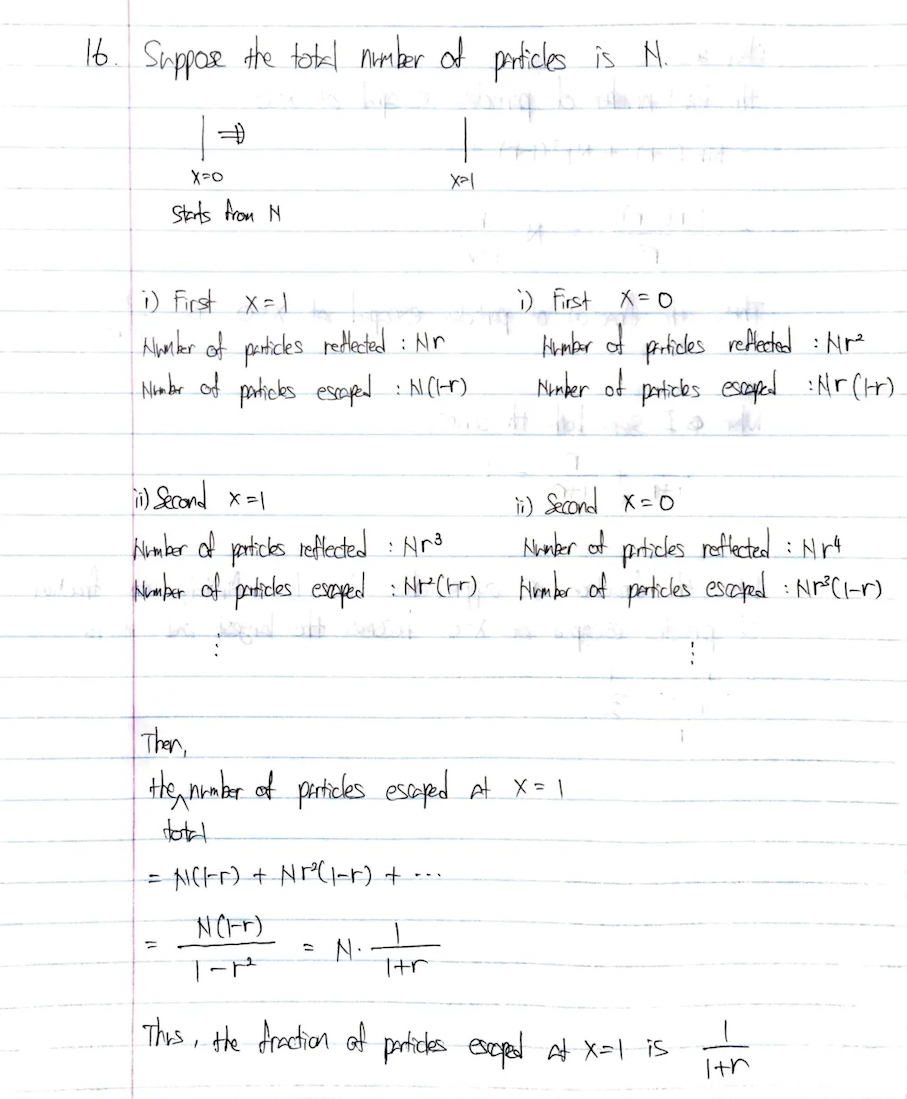 16. Suppose the total number of particles is N.
⇒
x=0 x=1
starts from N
i) First x=1
Number of particles reflected : Nr
Number of particles escaped : N(1-r)
i) First x=0
Number of particles reflected : Nr²
Number of particles escaped : Nr(1-r)
ii) Second x=1
Number of particles reflected : Nr³
Number of particles escaped : Nr²(1-r)
⋮
ii) Second x=0
Number of particles reflected : Nr⁴
Number of particles escaped : Nr³(1-r)
⋮
Then,
the total number of particles escaped at x=1
= N(1-r) + Nr²(1-r) + ⋯
= N(1-r)/(1-r²) = N · 1/(1+r)
Thus, the fraction of particles escaped at x=1 is 1/(1+r)